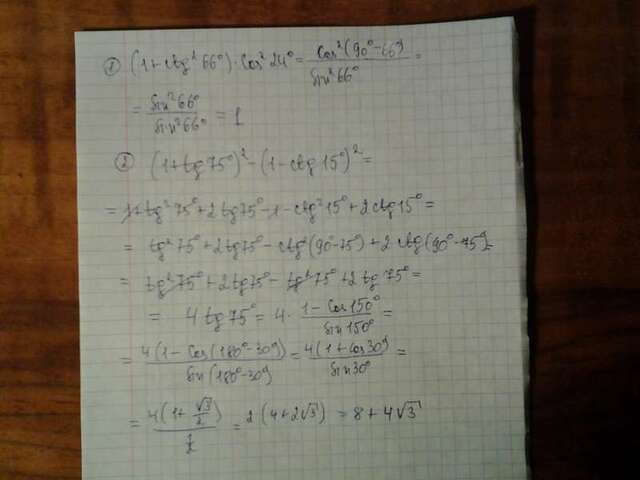 ① (1+ctg²66°)·cos²24° = cos²(90°-66°)/sin²66° =
= sin²66°/sin²66° = 1
② (1+tg75°)² - (1-ctg15°)² =
= 1+tg²75°+2tg75°-1-ctg²15°+2ctg15° =
= tg²75°+2tg75°-ctg²(90°-75°)+2ctg(90°-75°) =
= tg²75°+2tg75°-tg²75°+2tg75° =
= 4tg75° = 4·(1-cos150°)/sin150° =
= 4(1-cos(180°-30°))/sin(180°-30°) = 4(1+cos30°)/sin30° =
= 4(1+√3/2)/(1/2) = 2(4+2√3) = 8+4√3